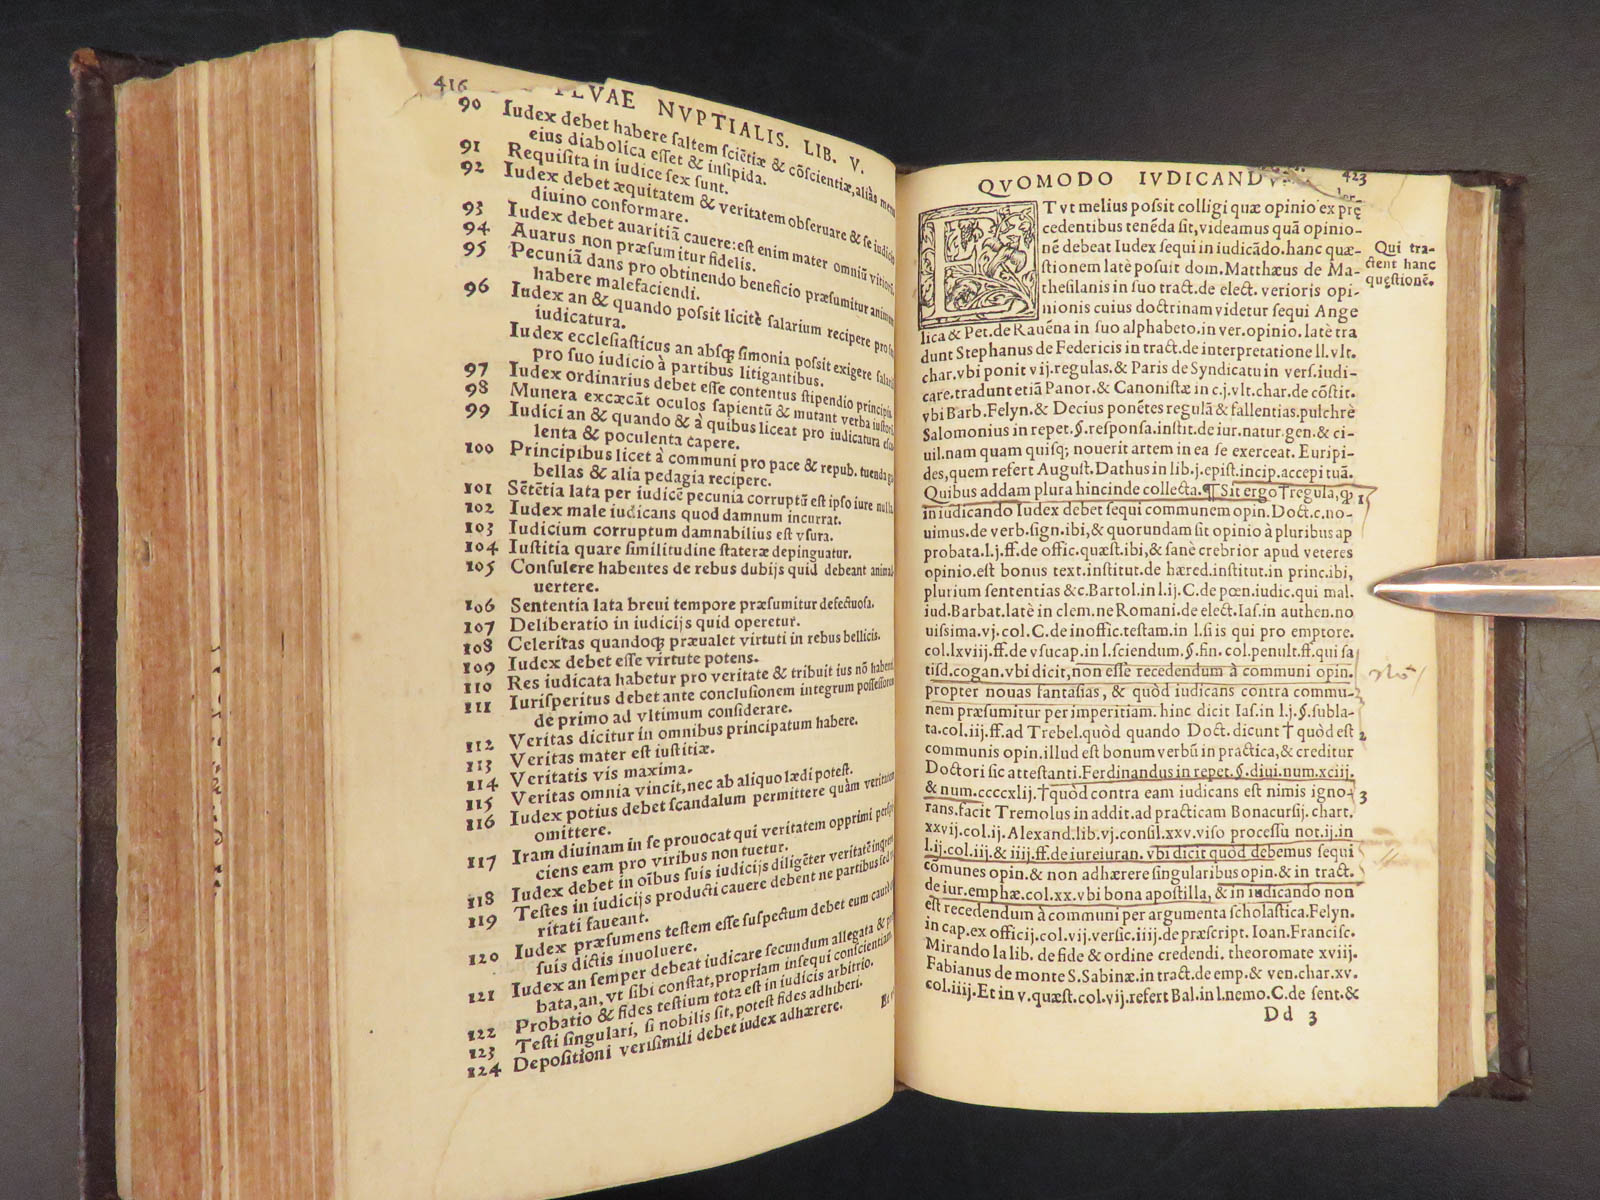 416 NVPTIALIS. LIB. V.
90 Iudex debet habere ſaltem ſciẽtiæ & cõſcientiæ, aliàs
eius diabolica eſſet & inſipida.
91 Requiſita in iudice ſex ſunt.
92 Iudex debet æquitatem & veritatem obſeruare & ſe
diuino conformare.
93 Iudex debet auaritiã cauere: eſt enim mater omniũ
94 Auarus non præſumitur fidelis.
95 Pecuniã dans pro obtinendo beneficio præſumitur
habere malefaciendi.
96 Iudex an & quando poſsit licitè ſalarium recipere pro
iudicatura.
Iudex eccleſiaſticus an abſqꝫ ſimonia poſsit exigere
pro ſuo iudicio à partibus litigantibus.
97 Iudex ordinarius debet eſſe contentus ſtipendio
98 Munera excæcãt oculos ſapientũ & mutant verba
99 Iudici an & quando & à quibus liceat pro iudicatura
lenta & poculenta capere.
100 Principibus licet à communi pro pace & repub. tuenda
bellas & alia pedagia recipere.
101 Sẽtẽtia lata per iudicẽ pecunia corruptũ eſt ipſo iure
102 Iudex male iudicans quod damnum incurrat.
103 Iudicium corruptum damnabilius eſt vſura.
104 Iuſtitia quare ſimilitudine ſtateræ depinguatur.
105 Conſulere habentes de rebus dubijs quid debeant
uertere.
106 Sententia lata breui tempore præſumitur defectuoſa.
107 Deliberatio in iudicijs quid operetur.
108 Celeritas quandoqꝫ præualet virtuti in rebus bellicis.
109 Iudex debet eſſe virtute potens.
110 Res iudicata habetur pro veritate & tribuit ius nõ
111 Iuriſperitus debet ante concluſionem integrum
de primo ad vltimum conſiderare.
112 Veritas dicitur in omnibus principatum habere.
113 Veritas mater eſt iuſtitiæ.
114 Veritatis vis maxima.
115 Veritas omnia vincit, nec ab aliquo lædi poteſt.
116 Iudex potius debet ſcandalum permittere quàm
omittere.
117 Iram diuinam in ſe prouocat qui veritatem opprimi
ciens eam pro viribus non tuetur.
118 Iudex debet in oĩbus ſuis iudicijs diligẽter veritatẽ
119 Teſtes in iudicijs producti cauere debent ne partibus
ritati faueant.
120 Iudex præſumens teſtem eſſe ſuſpectum debet eum
ſuis dictis inuoluere.
121 Iudex an ſemper debeat iudicare ſecundum allegata &
bata, an, vt ſibi conſtat, propriam inſequi conſcientiam.
122 Probatio & fides teſtium tota eſt in iudicis arbitrio.
123 Teſti ſingulari, ſi nobilis ſit, poteſt fides adhiberi.
124 Depoſitioni veriſimili debet iudex adhærere.
QVOMODO 423
TVt melius poſsit colligi quæ opinio ex prę
cedentibus tenẽda ſit, videamus quã opinio-
nẽ debeat Iudex ſequi in iudicãdo. hanc quæ-
ſtionem latè poſuit dom. Matthæus de Ma-
theſilanis in ſuo tract. de elect. verioris opi-
nionis cuius doctrinam videtur ſequi Ange
lica & Pet. de Rauẽna in ſuo alphabeto. in ver. opinio. latè tra
dunt Stephanus de Federicis in tract. de interpretatione ll. vlt.
char. vbi ponit vij. regulas. & Paris de Syndicatu in verſ. iudi-
care. tradunt etiã Panor. & Canoniſtæ in c. j. vlt. char. de cõſtit.
vbi Barb. Felyn. & Decius ponẽtes regulã & fallentias. pulchrè
Salomonius in repet. §. reſponſa. inſtit. de iur. natur. gen. & ci-
uil. nam quam quiſqꝫ nouerit artem in ea ſe exerceat. Euripi-
des, quem refert Auguſt. Dathus in lib. j. epiſt. incip. accepi tuã.
Quibus addam plura hincinde collecta. ¶ Sit ergo † regula, ꝙ 1
in iudicando Iudex debet ſequi communem opin. Doct. c. no-
uimus. de verb. ſign. ibi, & quorundam ſit opinio à pluribus ap
probata. l. j. ff. de offic. quæſt. ibi, & ſanè crebrior apud veteres
opinio. eſt bonus text. inſtitut. de hæred. inſtitut. in princ. ibi,
plurium ſententias & c. Bartol. in l. ij. C. de pœn. iudic. qui mal.
iud. Barbat. latè in clem. ne Romani. de elect. Iaſ. in authen. no
uiſsima. vj. col. C. de inoffic. teſtam. in l. ſi is qui pro emptore.
col. lxviij. ff. de vſucap. in l. ſciendum. §. fin. col. penult. ff. qui ſa
tiſd. cogan. vbi dicit, non eſſe recedendum à communi opin.
propter nouas fantaſias, & quòd iudicans contra commu-
nem præſumitur per imperitiam. hinc dicit Iaſ. in l. j. §. ſubla-
ta. col. iij. ff. ad Trebel. quòd quando Doct. dicunt † quòd eſt 2
communis opin. illud eſt bonum verbũ in practica, & creditur
Doctori ſic atteſtanti. Ferdinandus in repet. §. diui. num. xciij.
& num. ccccxlij. † quòd contra eam iudicans eſt nimis igno- 3
rans. facit Tremolus in addit. ad practicam Bonacurſij. chart.
xxvij. col. ij. Alexand. lib. vj. conſil. xxv. viſo proceſſu not. ij. in
l. ij. col. iij. & iiij. ff. de iureiuran. vbi dicit quòd debemus ſequi
cõmunes opin. & non adhærere ſingularibus opin. & in tract.
de iur. emphæ. col. xx. vbi bona apoſtilla, & in iudicando non
eſt recedendum à communi per argumenta ſcholaſtica. Felyn.
in cap. ex officij. col. vij. verſic. iiij. de præſcript. Ioan. Franciſc.
Mirandola lib. de fide & ordine credendi. theoromate xviij.
Fabianus de monte S. Sabinæ. in tract. de emp. & ven. char. xv.
col. iiij. Et in v. quæſt. col. vij. refert Bal. in l. nemo. C. de ſent. &
Dd 3
Qui tra-
ctent hanc
quęſtionẽ.